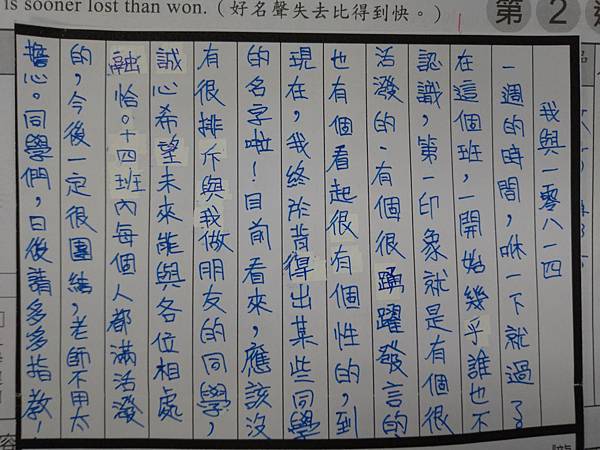 is sooner lost than won.（好名聲失去比得到快。）
第 2
我與一零八一四
一週的時間，咻一下就過了
在這個班，一開始幾乎誰也不
認識，第一印象就是有個很
活潑的，有個很踴躍發言的
也有個看起很有個性的，到
現在，我終於背得出某些同學
的名字啦！目前看來，應該沒
有很排斥與我做朋友的同學，
誠心希望未來能與各位相處
融恰。十四班內每個人都滿活潑
的，今後一定很團結，老師不用太
擔心。同學們，日後請多多指教！